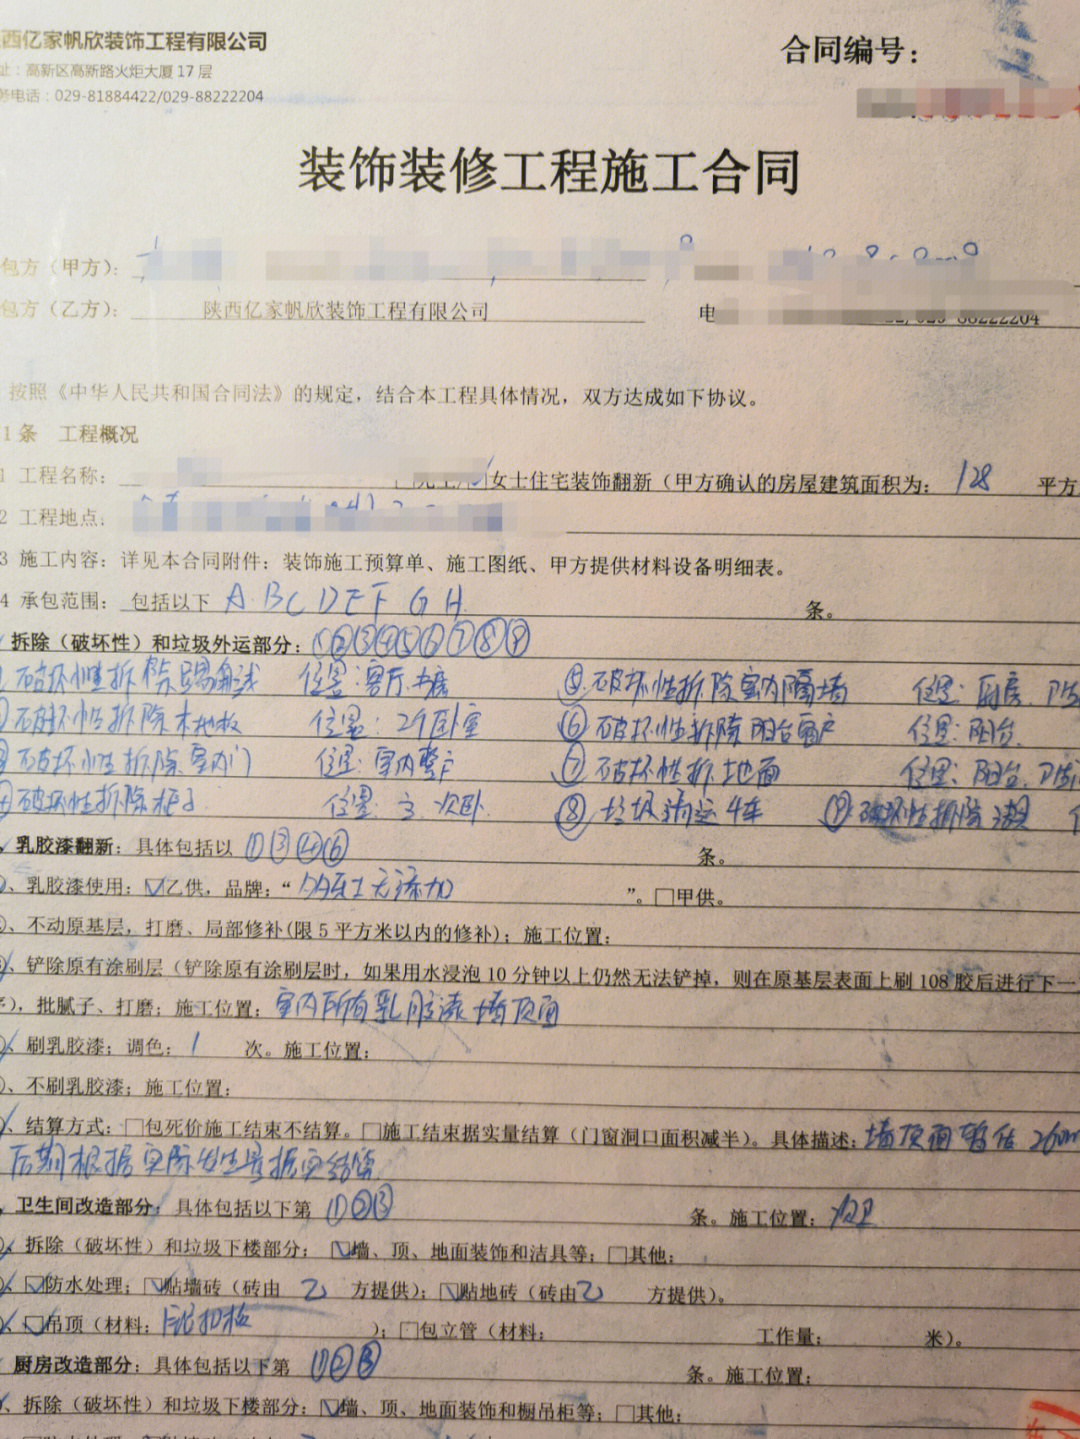 西亿家帆欣装饰工程有限公司
址：高新区高新路火炬大厦 17 层
电话：029-81884422/029-88222204
合同编号：
装饰装修工程施工合同
包方（甲方）：
包方（乙方）： 陕西亿家帆欣装饰工程有限公司 电 88222204
按照《中华人民共和国合同法》的规定，结合本工程具体情况，双方达成如下协议。
1条 工程概况
1 工程名称： 女士住宅装饰翻新（甲方确认的房屋建筑面积为： 128 平方
2 工程地点：
3 施工内容：详见本合同附件：装饰施工预算单、施工图纸、甲方提供材料设备明细表。
4 承包范围： 包括以下 A B C D E F G H 条。
拆除（破坏性）和垃圾外运部分：①②③④⑤⑥⑦⑧⑨
破坏性拆除 角线 位置：客厅 ⑤ 破坏性拆除室内隔墙 位置：厨房、卫
破坏性拆除木地板 位置：2个卧室 ⑥ 破坏性拆除阳台窗户 位置：阳台
破坏性拆除室内门 位置：室内 ⑦ 破坏性拆地面 位置：阳台、卫
④破坏性拆除柜子 位置：主、次卧 ⑧ 垃圾清运4车 ⑨ 破坏性拆除
乳胶漆翻新：具体包括以 ①③④⑥ 条。
、乳胶漆使用：☑乙供，品牌：“ 无添加 ”。□甲供。
、不动原基层，打磨、局部修补(限 5 平方米以内的修补)；施工位置：
、铲除原有涂刷层（铲除原有涂刷层时，如果用水浸泡 10 分钟以上仍然无法铲掉，则在原基层表面上刷 108 胶后进行下一
），批腻子、打磨；施工位置：室内所有乳胶漆墙顶面
、刷乳胶漆；调色： 1 次。施工位置：
、不刷乳胶漆；施工位置：
、结算方式：□包死价施工结束不结算。□施工结束据实量结算（门窗洞口面积减半）。具体描述：墙顶面暂估 260
后期根据实际发生量据实结算
卫生间改造部分：具体包括以下第 ①②③ 条。施工位置：
、拆除（破坏性）和垃圾下楼部分：☑墙、顶、地面装饰和洁具等；□其他：
、☑防水处理；☑贴墙砖（砖由 乙 方提供）；☑贴地砖（砖由 乙 方提供）。
、☑吊顶（材料： 扣板 ）；□包立管（材料： 工作量： 米）。
厨房改造部分：具体包括以下第 ①②③ 条。施工位置：
、拆除（破坏性）和垃圾下楼部分：☑墙、顶、地面装饰和橱吊柜等；□其他：